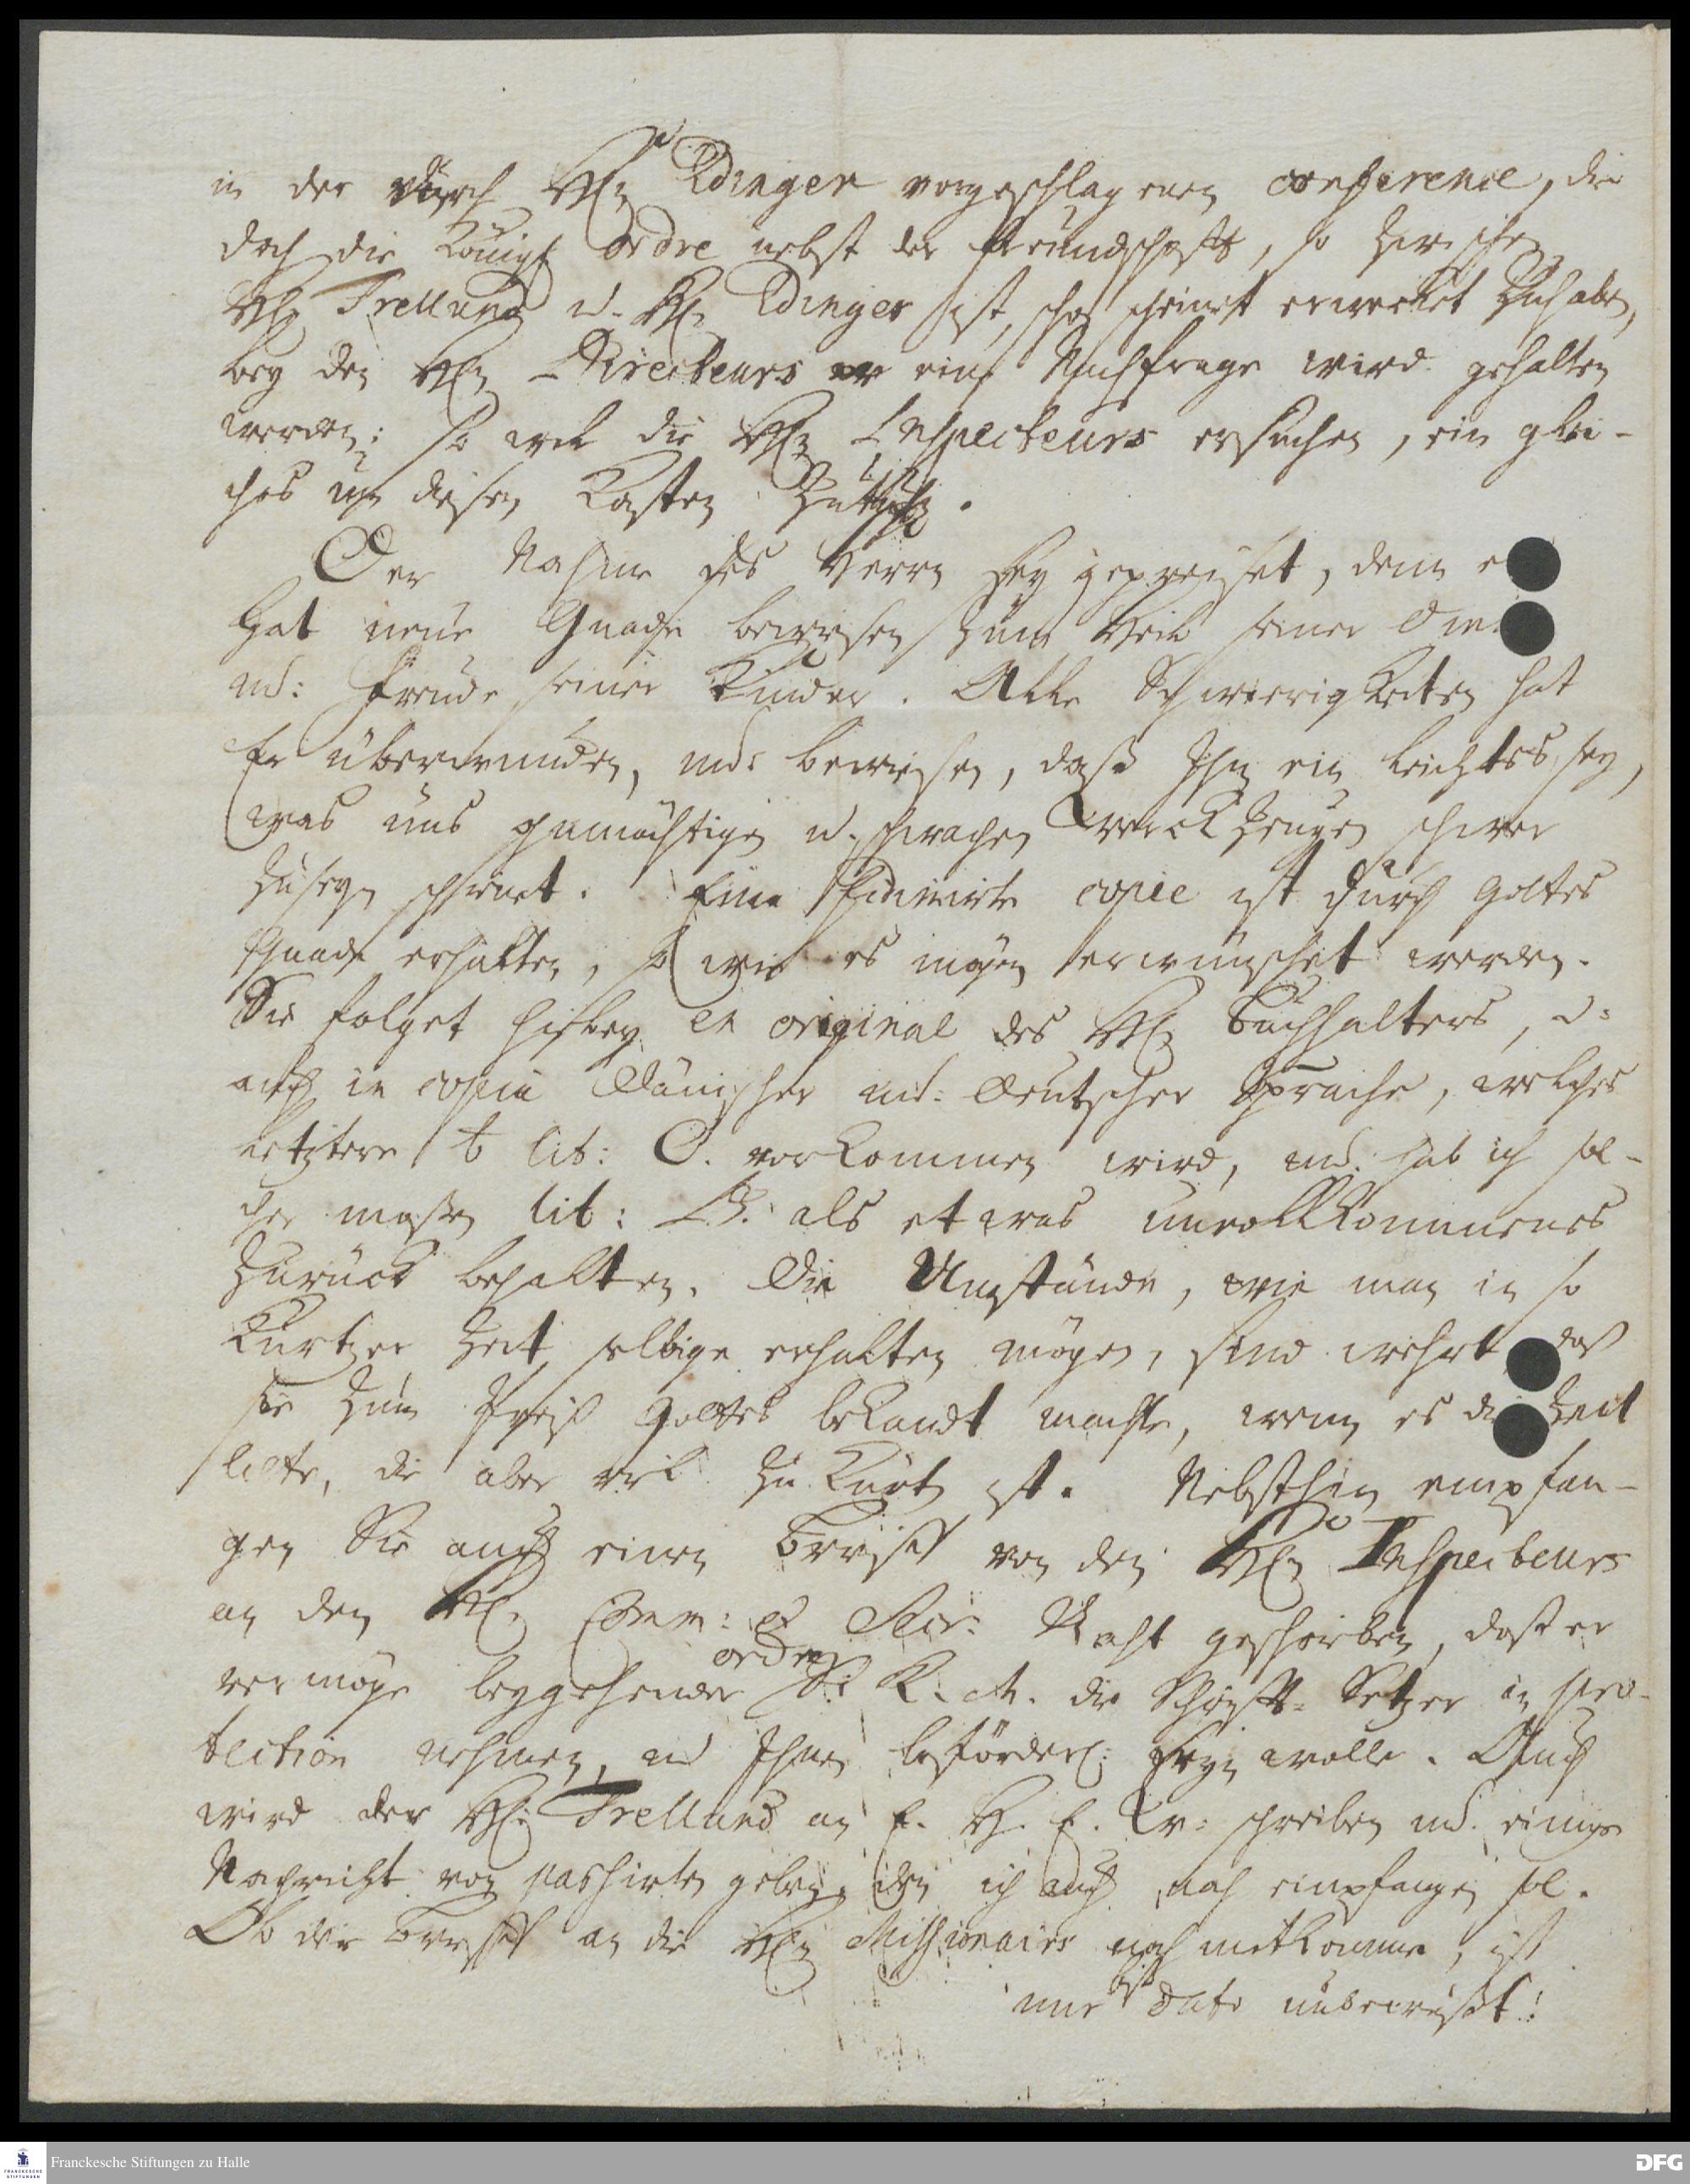 in der durch HEn Edinger vorgeschlagenen conference, die
doch die Königl ordre nebst der Freundschafft, so zwischen
HEn Trellund u. HEn Edinger ist, schon scheinet erwecket zuhaben,
bey den HEn Directeurs eine Nachfrage wird gehalten
werden; so will die HEn Inspecteurs ersuchen, ein glei-
ches um diesen Kasten zuthun.
Der Nahme des Herrn sey gepreiset, denn e
hat neue Gnade bewiesen zum Heil seiner
und: Freude seiner Kinder. Alle Schwierigkeiten hat
Er überwunden, und: bewiesen, daß Ihm ein leichtes sey,
was uns ohnmächtigen u. schwachen Werckzeugen schwer
zuseyn scheinet. Eine vidimirte copie ist durch Gottes
Gnade erhalten, so wie es mögen erwünschet werden.
Sie folget hiebey in original des HEn Buchhalters, u:
auch in copia Dänischer und: deutscher Sprache, welches
letztere lit: C. vorkommen wird, und. hab ich sol-
cher maßen lit: B. als etwas unvollkommenes
zurück behalten. Die Umstände, wie man in so
kurtzer Zeit selbige erhalten mögen, sind wehrt daß
sie zum Preiß Gottes bekandt machte, wenn es die Zeit
litte, die aber viel zu kurtz ist. Nebsthin empfan-
gen Sie auch einen Brieff von den HEn Inspecteurs
an den HEn Comm: Dir: Naht geschrieben, daß er
ordre
vermöge beygehender Sr K. M. die Schrifft-Setzer in pro-
tection nehmen, und Ihnen beförderl: seyn wolle. Auch
wird der HEr Trellund an E. H. E. Ew: schreiben und. einige
Nachricht von passirten geben, den ich auch noch empfangen sol.
Ob der Brieff an die HEn Missionairs noch mitkomme, ist
mir biß dato unbewust!
Franckesche Stiftungen zu Halle
DFG